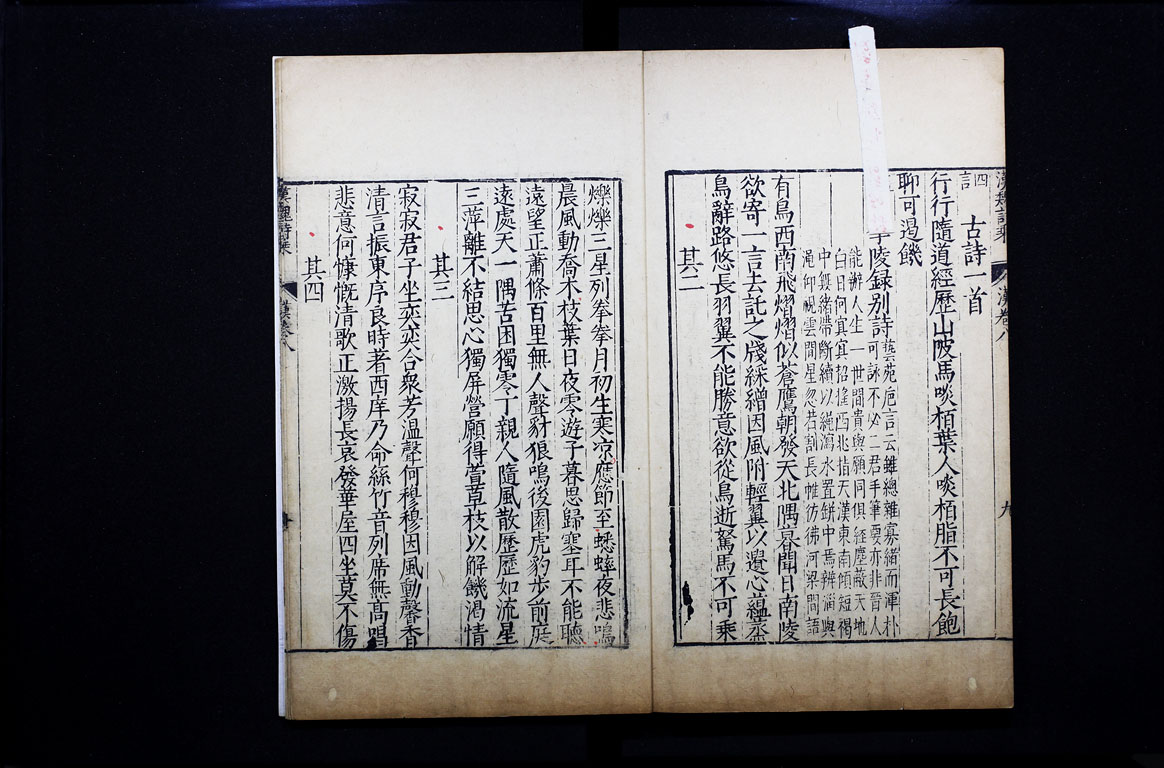 四言
古詩一首
行行隨道經歷山陂馬啖栢葉人啖栢脂不可長飽
聊可遏饑
李陵録别詩
藝苑巵言云雖總雜寡緒而渾朴
可詠不必二君手筆要亦非晉人
能辦人生一世間貴與願同俱經塵蔽天地
白日何冥冥招搖西北指天漢東南傾短褐
中無緒帶斷續以繩瀉水置缾中焉辨淄與
澠仰視雲間星忽若割長帷彷彿河梁間語
有鳥西南飛熠熠似蒼鷹朝發天北隅暮聞日南陵
欲寄一言去託之牋綵繒因風附輕翼以遺心蘊蒸
鳥辭路悠長羽翼不能勝意欲從鳥逝駑馬不可乘
其二
爍爍三星列拳拳月初生寒凉應節至蟋蟀夜悲鳴
晨風動喬木枝葉日夜零遊子暮思歸塞耳不能聽
遠望正蕭條百里無人聲豺狼鳴後園虎豹步前庭
遠處天一隅苦困獨零丁親人隨風散歷歷如流星
三萍離不結思心獨屏營願得萱草枝以解饑渴情
其三
寂寂君子坐奕奕合衆芳温聲何穆穆因風動馨香
清言振東序良時著西庠乃命絲竹音列席無高唱
悲意何慷慨清歌正激揚長哀發華屋四坐莫不傷
其四